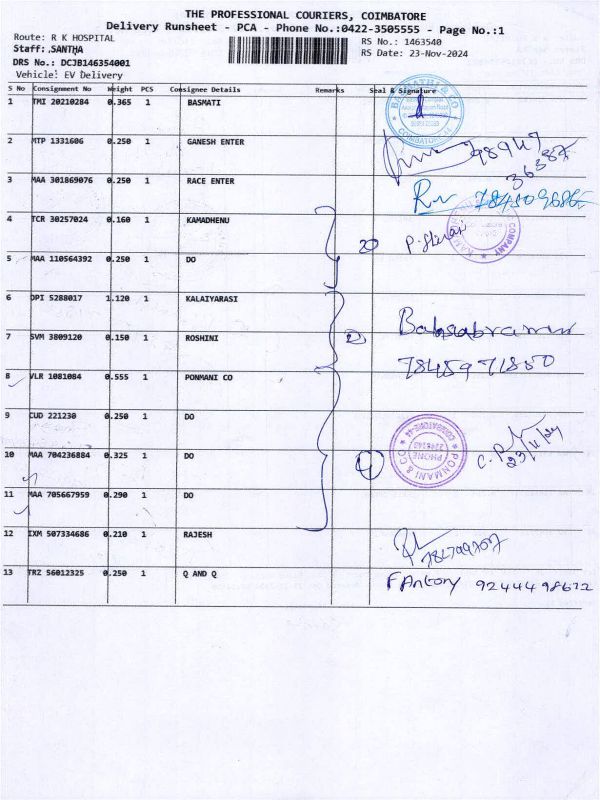 THE PROFESSIONAL COURIERS, COIMBATORE
Delivery Runsheet - PCA - Phone No.:0422-3505555 - Page No.:1
Route: R K HOSPITAL
RS No.: 1463540
Staff: .SANTHA
RS Date: 23-Nov-2024
DRS No.: DCJB146354001
Vehicle: EV Delivery
S No Consignment No Weight PCS Consignee Details Remarks Seal & Signature
1 TMI 20210284 0.365 1 BASMATI
2 MTP 1331606 0.250 1 GANESH ENTER
98947
36387
3 MAA 301869076 0.250 1 RACE ENTER
4 TCR 30257024 0.160 1 KAMADHENU
5 MAA 110564392 0.250 1 DO
6 OPI 5288017 1.120 1 KALAIYARASI
7 SVM 3809120 0.150 1 ROSHINI
7845971850
8 VLR 1081084 0.555 1 PONMANI CO
9 CUD 221230 0.250 1 DO
10 MAA 704236884 0.325 1 DO
4
PONMANI & CO
PHONE
COIMBATORE-44
23/11/24
11 MAA 705667959 0.290 1 DO
12 IXM 507334686 0.210 1 RAJESH
13 TRZ 56012325 0.250 1 Q AND Q
F Antony 9244498672